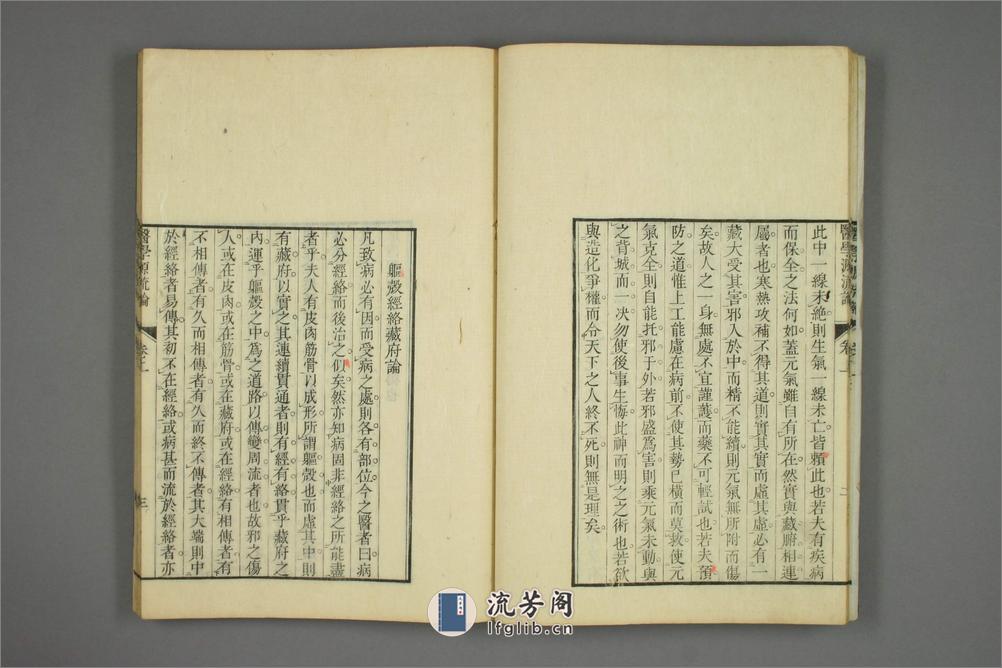 此中一線未絶則生氣一線未亡皆頼此也若夫有疾病
而保全之法何如蓋元氣雖自有所在然實與藏腑相連
屬者也寒熱攻補不得其道則實其實而虛其虛必有一
藏大受其害邪入於中而精不能續則元氣無所附而傷
矣故人之一身無處不宜謹護而藥不可輕試也若夫預
防之道惟上工能慮在病前不使其勢已橫而莫救使元
氣克全則自能托邪于外若邪盛爲害則乘元氣未動與
之背城而一决勿使後事生悔此神而明之之術也若欲
與造化爭權而令天下之人終不死則無是理矣
醫學源流論
卷上
二
軀殼經絡藏府論
凡致病必有因而受病之處則各有部位今之醫者曰病
必分經絡而後治之似矣然亦知病固非經絡之所能盡
者乎夫人有皮肉筋骨以成形所謂軀殼也而虛其中則
有藏府以實之其連續貫通者則有經有絡貫乎藏府之
內運乎軀殼之中爲之道路以傳變周流者也故邪之傷
人或在皮肉或在筋骨或在藏府或在經絡有相傳者有
不相傳者有久而相傳者有久而終不傳者其大端則中
於經絡者易傳其初不在經絡或病甚而流於經絡者亦
醫學源流論
卷上
三
流芳阁
lfglib.cn